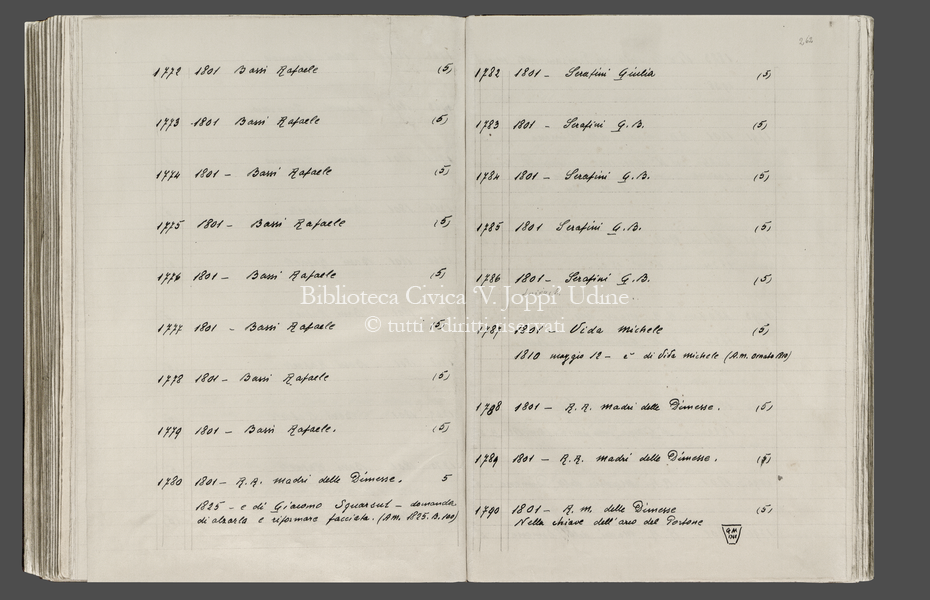 1772 1801 Bassi Rafaele (5)
1773 1801 Bassi Rafaele (5)
1774 1801 – Bassi Rafaele (5)
1775 1801 – Bassi Rafaele (5)
1776 1801 – Bassi Rafaele (5)
1777 1801 – Bassi Rafaele (5)
1778 1801 – Bassi Rafaele (5)
1779 1801 – Bassi Rafaele. (5)
1780 1801 – R.R. madri delle Dimesse. 5
1825 – e di Giacomo – domanda
di alzarla e riformare facciata. (A.M. 1825. B. 100)
1782 1801 – Serafini Giulia (5)
1783 1801 – Serafini G.B. (5)
1784 1801 – Serafini G.B. (5)
1785 1801 Serafini G.B. (5)
1786 1801 – Serafini G.B. (5)
1787 1801 – Vida Michele (5)
1810 maggio 12 – è di Vida Michele (A.M. Ornato
1788 1801 – R.R. madri delle Dimesse. (5)
1789 1801 – R.R. madri delle Dimesse.
1790 1801 – R. M. delle Dimesse (5)
Nella chiave dell'arco del Portone
G M
Biblioteca Civica 'V. Joppi' Udine
© tutti i diritti riservati